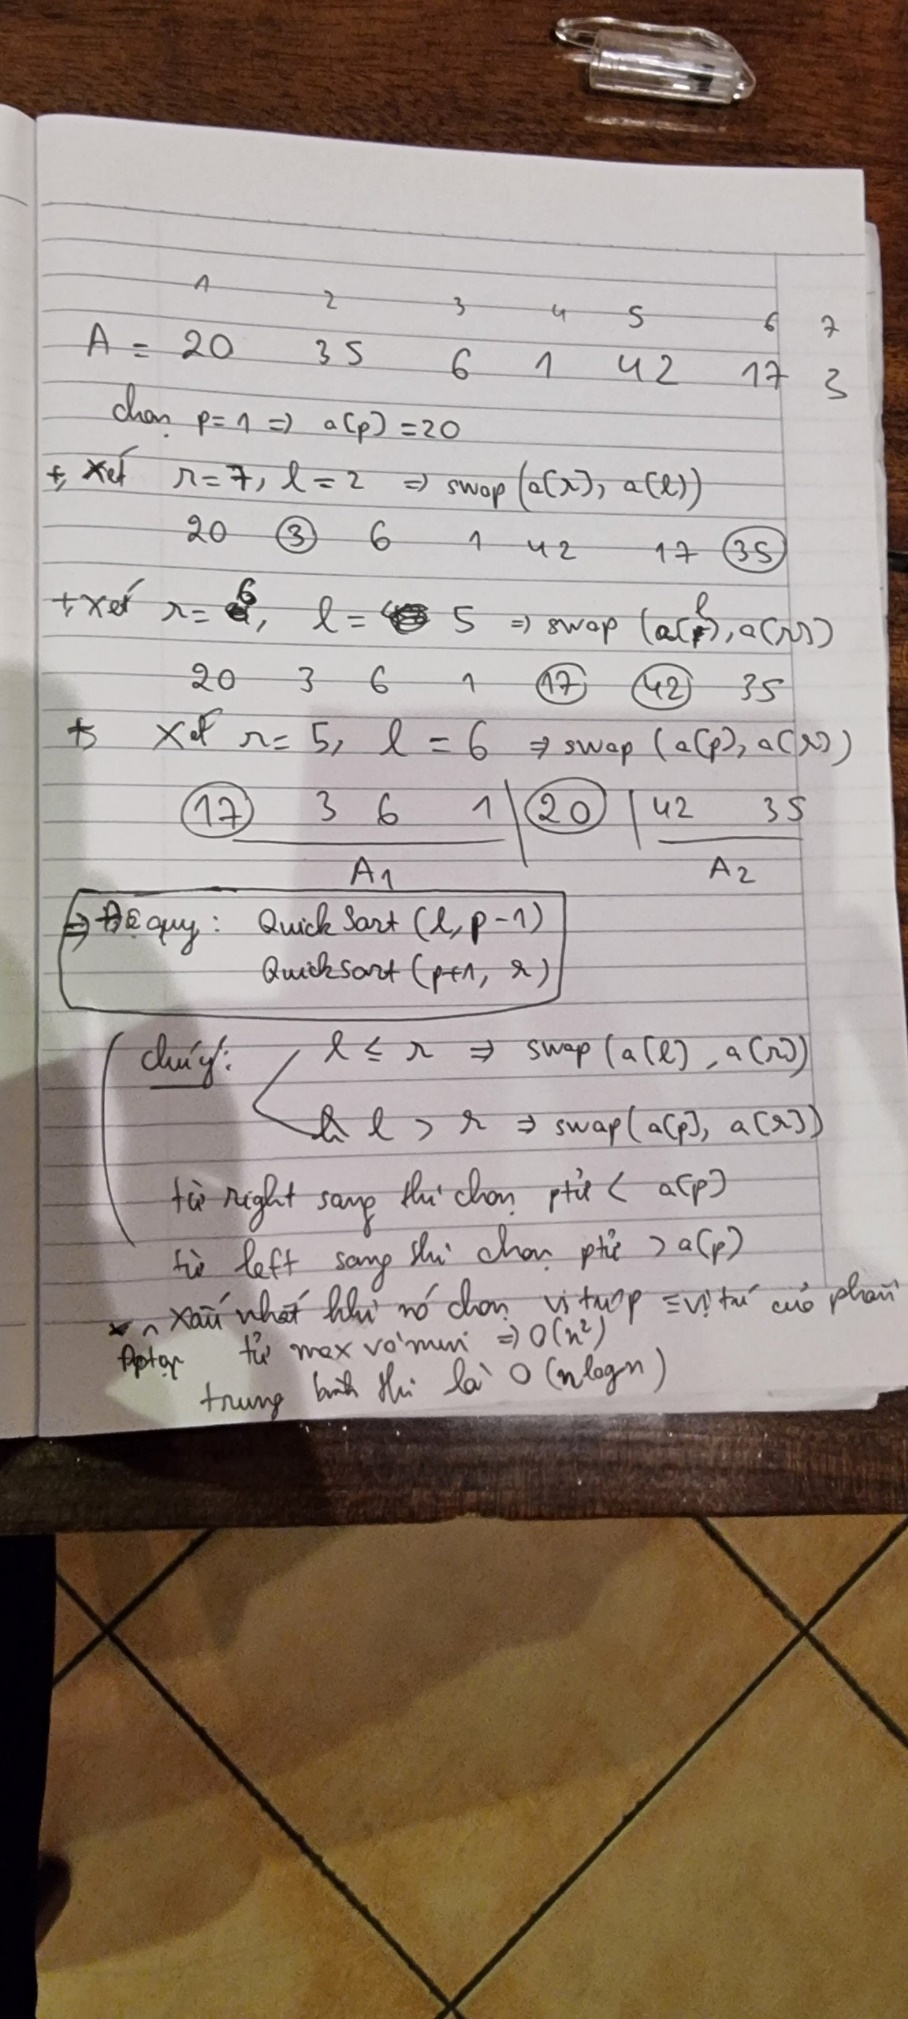 1 2 3 4 5 6 7
A = 20 35 6 1 42 17 3
chọn p=1 => a[p] = 20
+, Xét r=7, l=2 => swap (a[r], a[l])
20 3 6 1 42 17 35
+, Xét r= 6, l= 5 => swap (a[l], a[r])
20 3 6 1 17 42 35
+, Xét r= 5, l = 6 => swap (a[p], a[r])
17 3 6 1 | 20 | 42 35
A1 A2
=> Đệ quy: QuickSort (l, p-1)
QuickSort (p+1, r)
Chú ý: l ≤ r => swap (a[l], a[r])
l > r => swap (a[p], a[r])
từ right sang thì chọn ptử < a[p]
từ left sang thì chọn ptử > a[p]
Xấu nhất khi nó chọn vị trí p ≡ vị trí của phần
tử max và min => O(n²)
trung bình thì là O(nlogn)